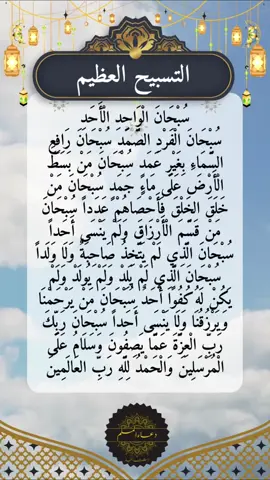 التسبيح العظيم
سُبْحَانَ الْوَاحِدِ الْأَحَد
سُبْحَانَ الْفَرْدِ الصَّمَدِ سُبْحَانَ رَافِعِ
السَّمَاءِ بِغَيْرِ عَمَدٍ سُبْحَانَ مَنْ بَسَطَ
الْأَرْضَ عَلَى مَاءٍ جَمَدٍ سُبْحَانَ مَنْ
خَلَقَ الْخَلْقَ فَأَحْصَاهُمْ عَدَداً سُبْحَانَ
مَنْ قَسَّمَ الْأَرْزَاقَ وَلَمْ يَنْسَى أَحَداً
سُبْحَانَ الَّذِي لَمْ يَتَّخِذْ صَاحِبَةً وَلَا وَلَداً
سُبْحَانَ الَّذِي لَمْ يَلِدْ وَلَمْ يُولَدْ وَلَمْ
يَكُنْ لَهُ كُفُوًا أَحَدٌ سُبْحَانَ مَنْ يَرْحَمُنَا
وَيَرْزُقُنَا وَلَا يَنْسَى أَحَداً سُبْحَانَ رَبِّكَ
رَبِّ الْعِزَّةِ عَمَّا يَصِفُونَ وَسَلَامٌ عَلَى
الْمُرْسَلِينَ وَالْحَمْدُ لِلَّهِ رَبِّ الْعَالَمِينَ